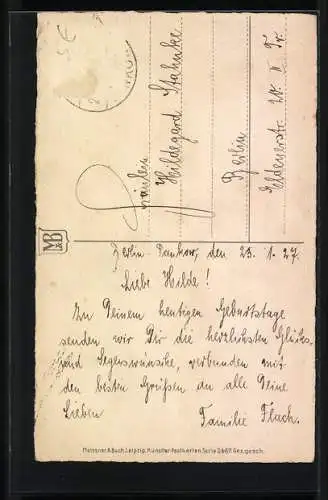 Fräulein
Hildegard Stahnke
Berlin
Eldenerstr. 20. II Tr.
M&B
Berlin Pankow, den 23. 1. 27.
Liebe Hilde!
Zu Deinem heutigen Geburtstage
senden wir Dir die herzlichsten Glücks
und Segenswünsche, verbunden mit
den besten Grüssen an alle Deine
Lieben
Familie Flach.
Meissner & Buch, Leipzig. Künstler-Postkarten Serie 2467. Ges. gesch.